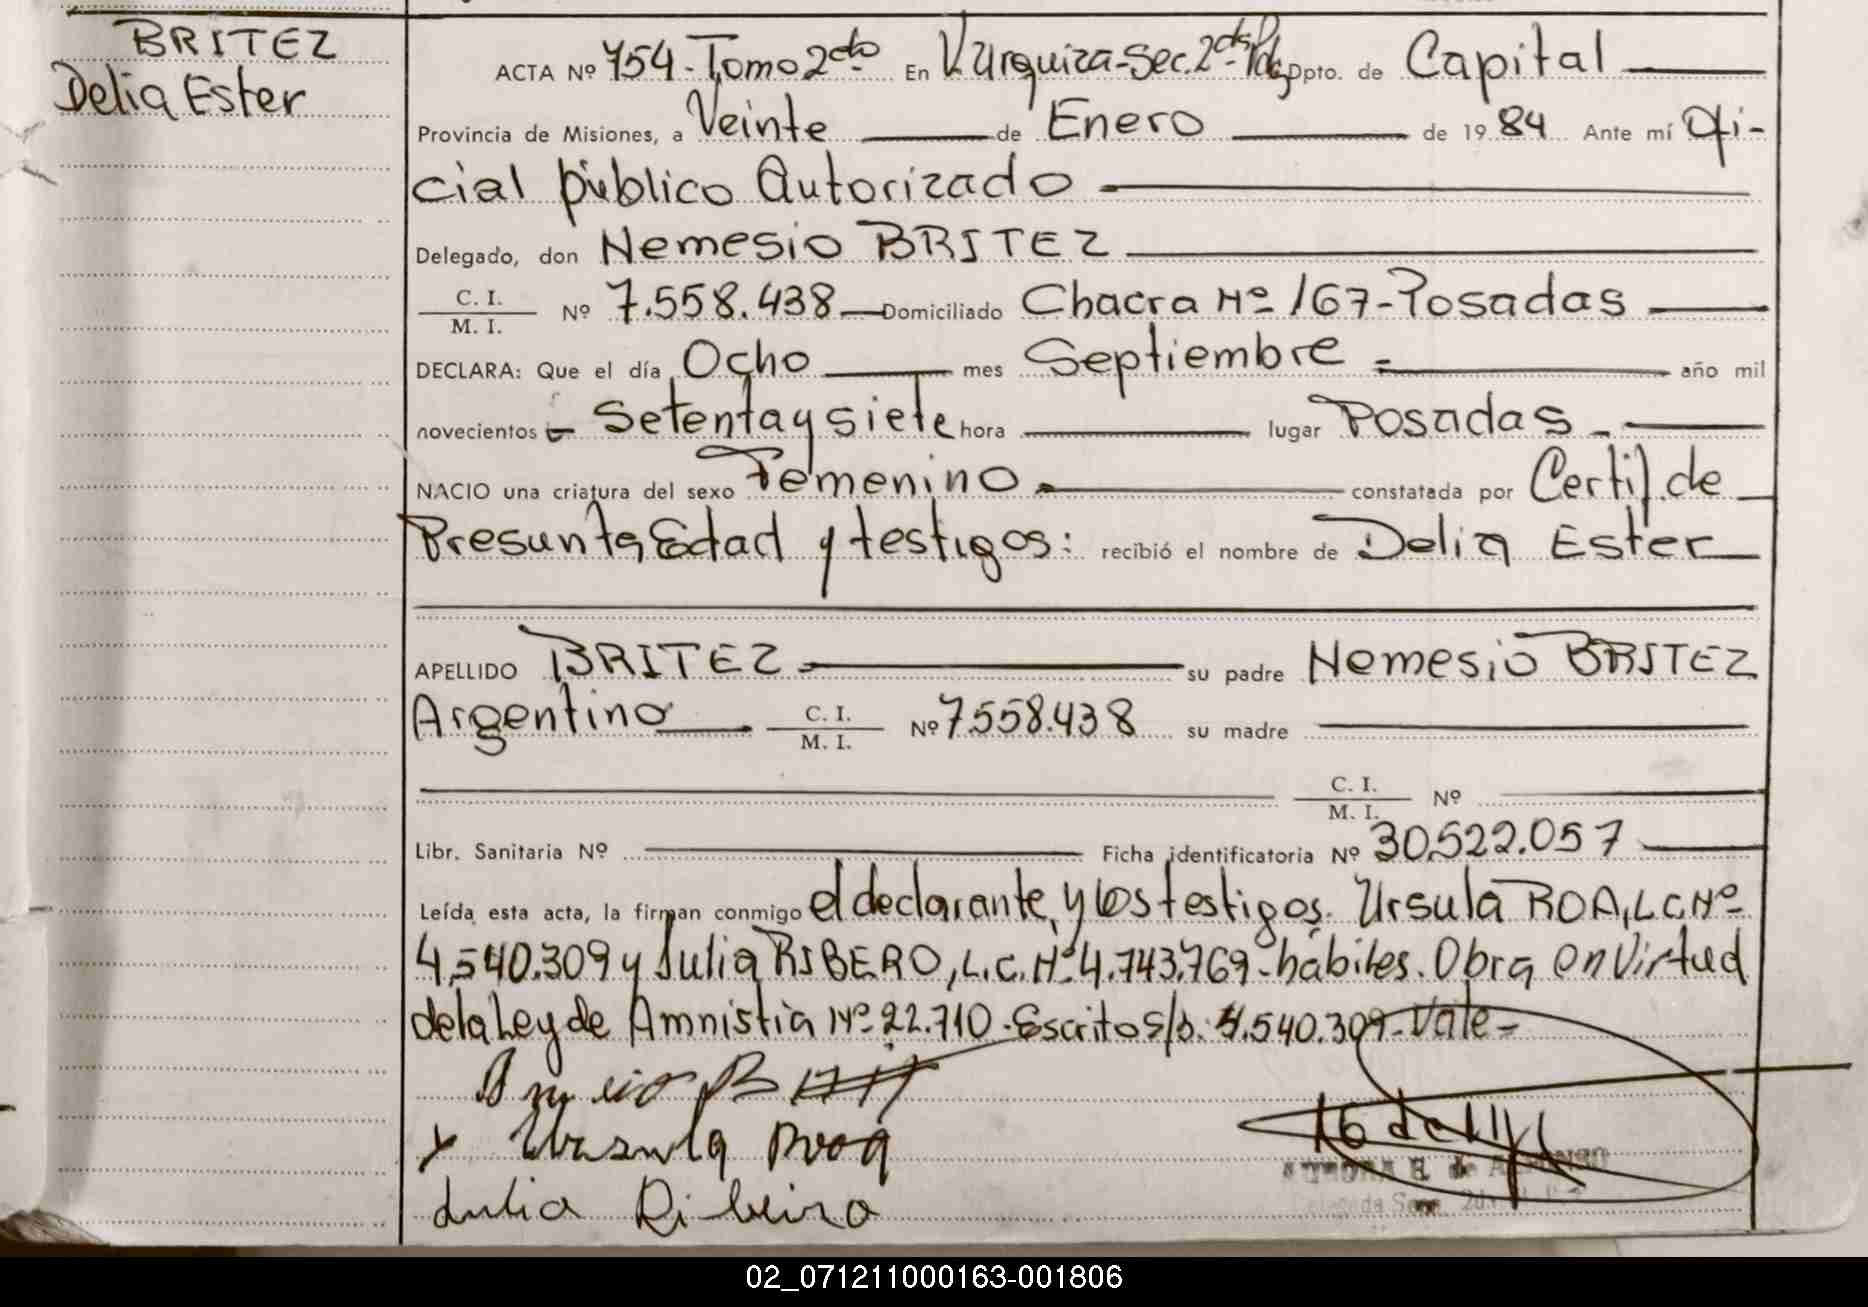 BRITEZ
Delia Ester
ACTA Nº 754-Tomo 2do En V.Urquiza-Sec.2da-Pdas Dpto. de Capital
Provincia de Misiones, a Veinte de Enero de 1984 Ante mí Ofi-
cial público Autorizado
Delegado, don Nemesio BRITEZ
C. I. / M. I. Nº 7.558.438 Domiciliado Chacra Nº 167-Posadas
DECLARA: Que el día Ocho mes Septiembre año mil
novecientos Setenta y siete hora lugar Posadas
NACIO una criatura del sexo Femenino constatada por Certif. de
Presunta Edad y testigos: recibió el nombre de Delia Ester
APELLIDO BRITEZ su padre Nemesio BRITEZ
Argentino C. I. / M. I. Nº 7.558.438 su madre
C. I. / M. I. Nº
Libr. Sanitaria Nº Ficha identificatoria Nº 30.522.057
Leída esta acta, la firman conmigo el declarante, y los testigos. Ursula ROA, L.C. Nº
4.540.309 y Julia RIBERO, L.C. Nº 4.743.769-hábiles. Obra en Virtud
de la Ley de Amnistia Nº 22.710. Escrito s/b. 4.540.309-Vale-
Ursula Roa
Julia Ribeiro
02_071211000163-001806